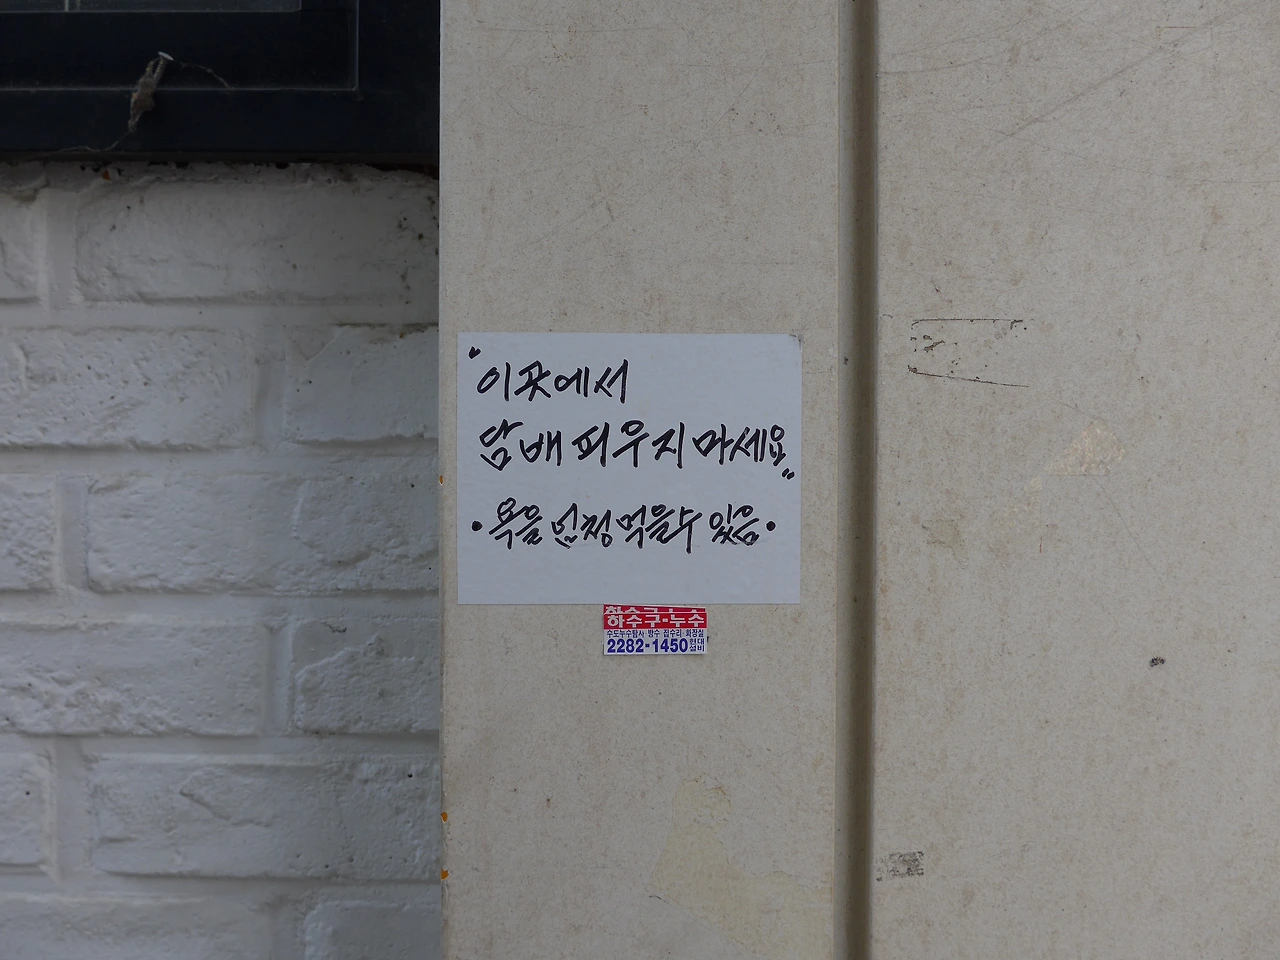 "이곳에서
담배 피우지 마세요"
•욕을 먼점 먹을수 있음•
하수구·누수
하수구·누수
수도누수탐사 방수 집수리 화장실
2282-1450 현대설비